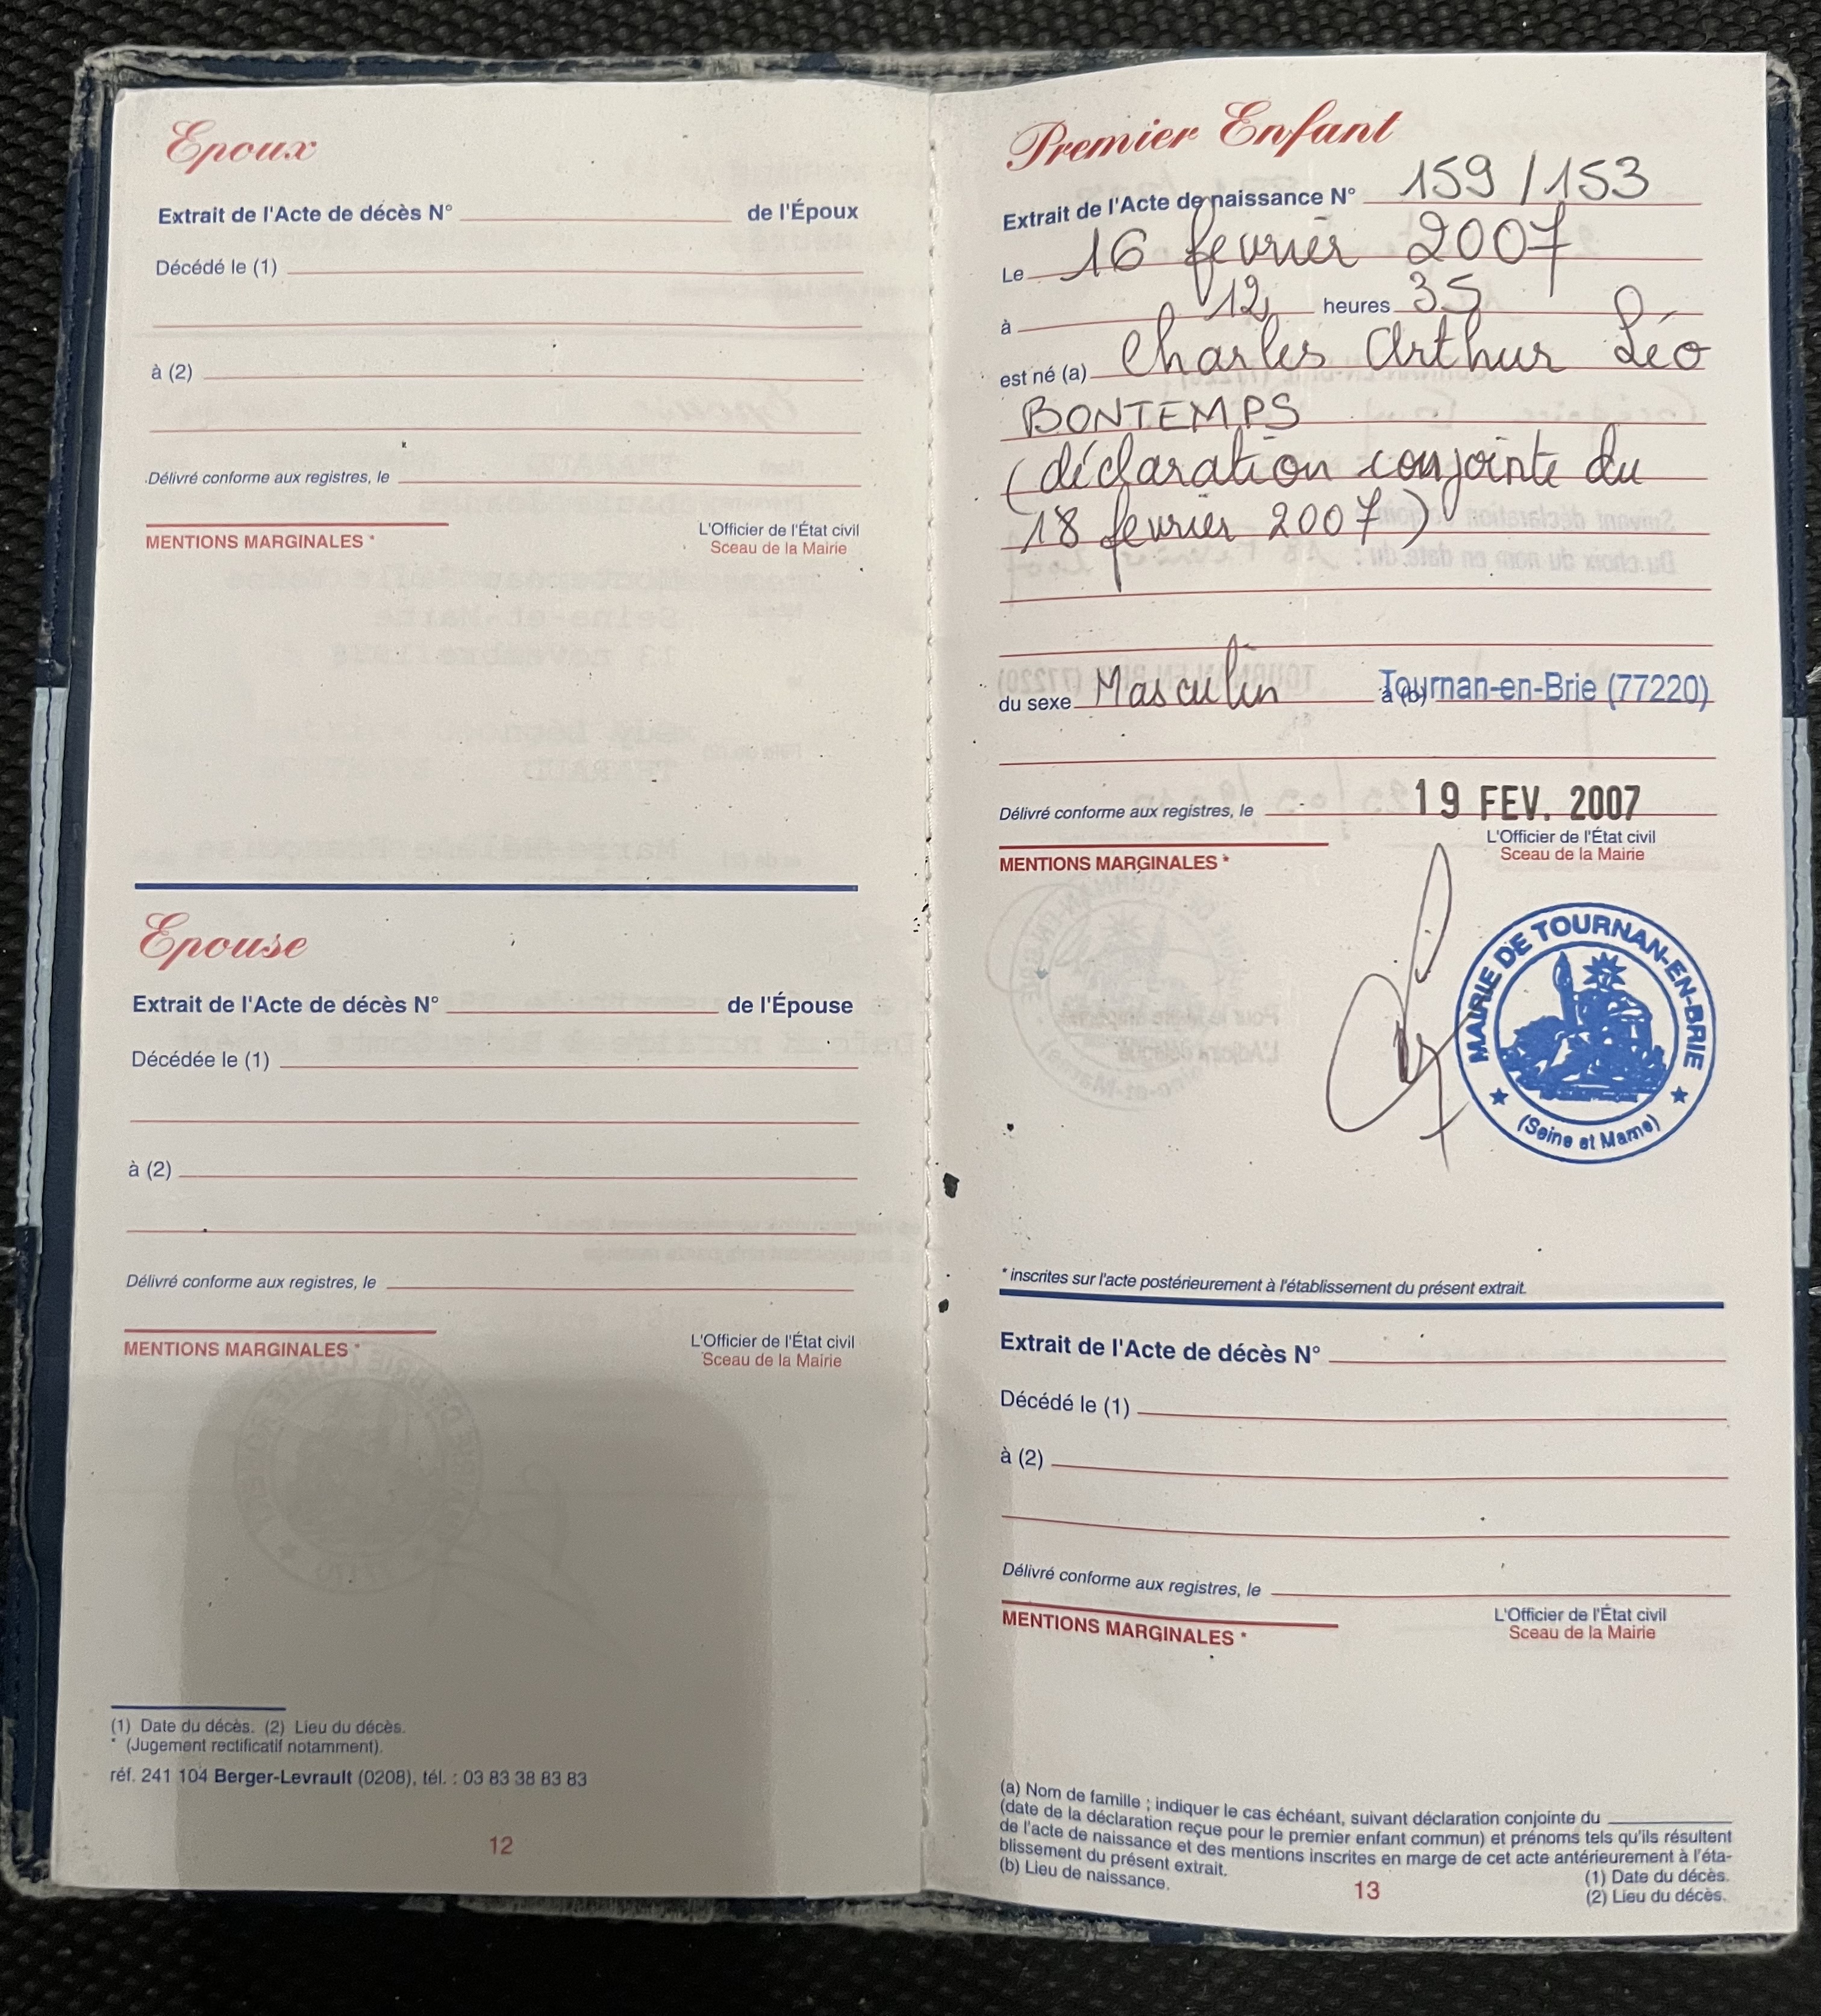 Epoux
Extrait de l'Acte de décès N° de l'Époux
Décédé le (1)
à (2)
Délivré conforme aux registres, le
MENTIONS MARGINALES *
L'Officier de l'État civil
Sceau de la Mairie
Epouse
Extrait de l'Acte de décès N° de l'Épouse
Décédée le (1)
à (2)
Délivré conforme aux registres, le
MENTIONS MARGINALES *
L'Officier de l'État civil
Sceau de la Mairie
(1) Date du décès. (2) Lieu du décès.
* (Jugement rectificatif notamment).
réf. 241 104 Berger-Levrault (0208), tél. : 03 83 38 83 83
12
Premier Enfant
Extrait de l'Acte de naissance N° 159/153
Le 16 fevrier 2007
à 12 heures 35
est né (a) Charles Arthur Léo
BONTEMPS
(déclaration conjointe du
18 fevrier 2007)
du sexe Masculin à (b) Tournan-en-Brie (77220)
Délivré conforme aux registres, le 19 FEV. 2007
L'Officier de l'État civil
Sceau de la Mairie
MENTIONS MARGINALES *
MAIRIE DE TOURNAN-EN-BRIE
(Seine et Marne)
* inscrites sur l'acte postérieurement à l'établissement du présent extrait.
Extrait de l'Acte de décès N°
Décédé le (1)
à (2)
Délivré conforme aux registres, le
MENTIONS MARGINALES *
L'Officier de l'État civil
Sceau de la Mairie
(a) Nom de famille ; indiquer le cas échéant, suivant déclaration conjointe du
(date de la déclaration reçue pour le premier enfant commun) et prénoms tels qu'ils résultent
de l'acte de naissance et des mentions inscrites en marge de cet acte antérieurement à l'éta-
blissement du présent extrait.
(b) Lieu de naissance.
(1) Date du décès.
(2) Lieu du décès.
13